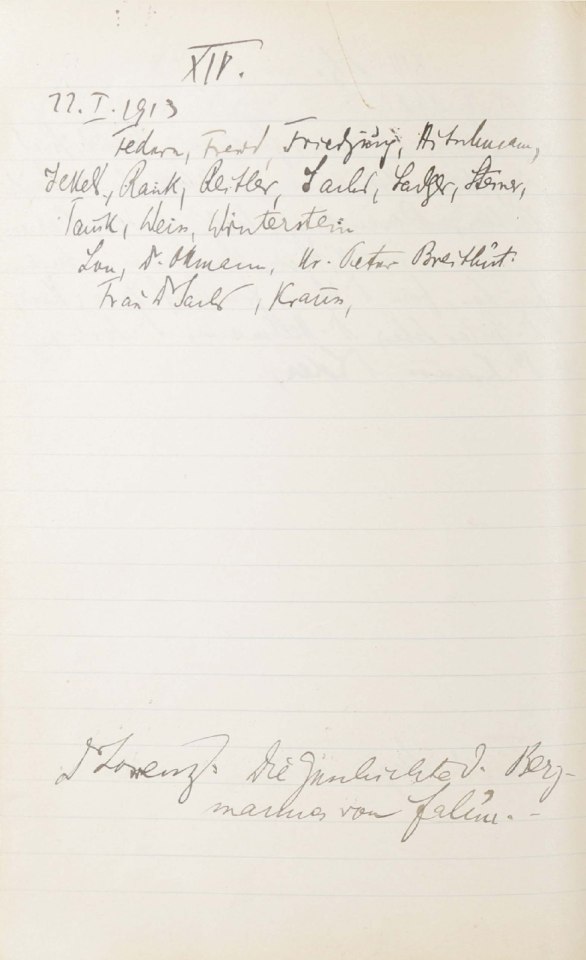 XIV.
22. I. 1913
Federn, Freud, Friedjung, Hitschmann,
Jekels, Rank, Reitler, Sachs, Sadger, Steiner,
Tausk, Weiss, Winterstein
Lou, Dr. Hr. Peter Breithut.
Frau Dr Sachs, Kraus,
Dr Lorenz: Die Geschichte d. Berg-
mannes von Falun. -